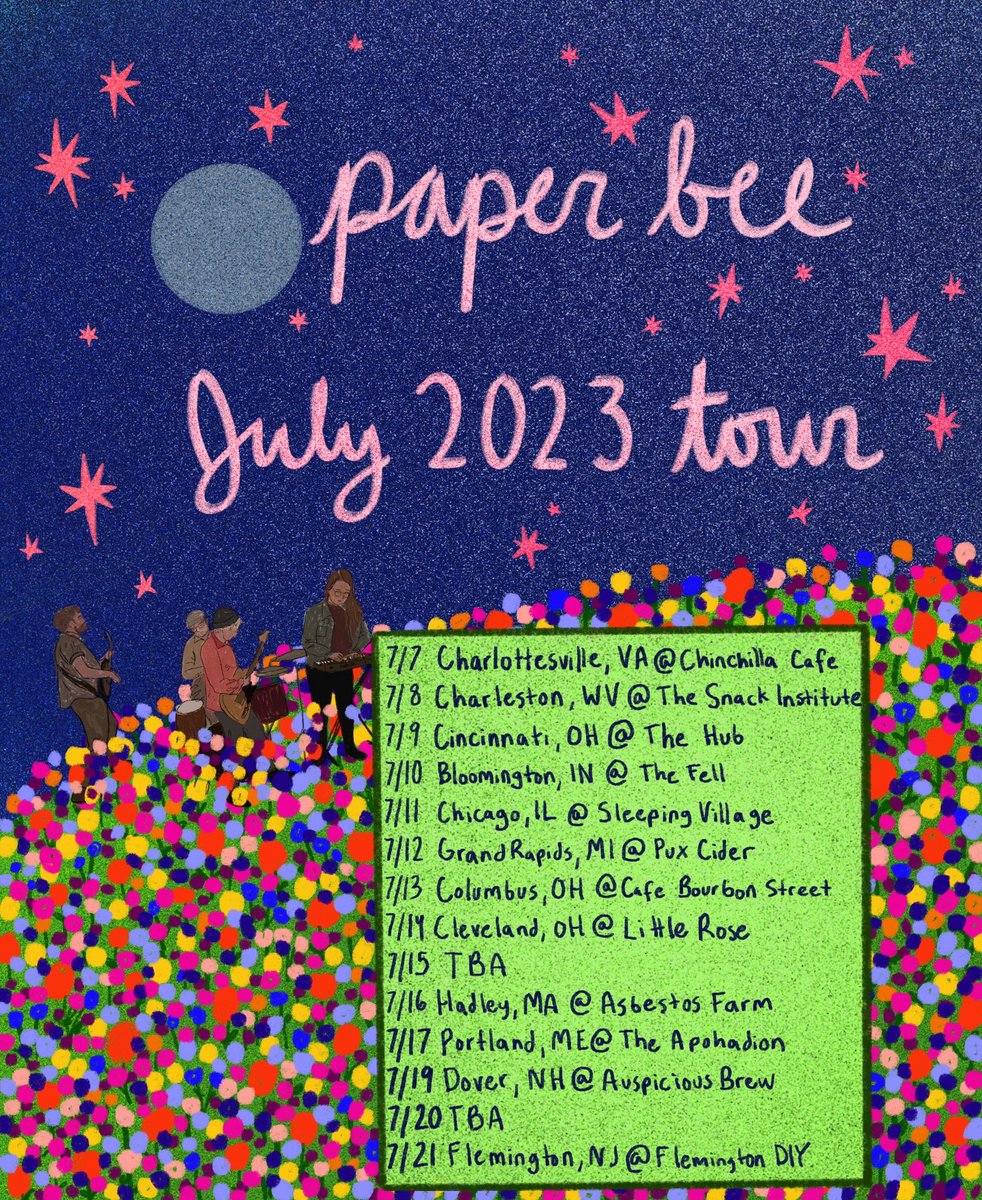 paper bee
July 2023 tour
7/7 Charlottesville, VA @ Chinchilla Cafe
7/8 Charleston, WV @ The Snack Institute
7/9 Cincinnati, OH @ The Hub
7/10 Bloomington, IN @ The Fell
7/11 Chicago, IL @ Sleeping Village
7/12 Grand Rapids, MI @ Pux Cider
7/13 Columbus, OH @ Cafe Bourbon Street
7/14 Cleveland, OH @ Little Rose
7/15 TBA
7/16 Hadley, MA @ Asbestos Farm
7/17 Portland, ME @ The Apohadion
7/19 Dover, NH @ Auspicious Brew
7/20 TBA
7/21 Flemington, NJ @ Flemington DIY